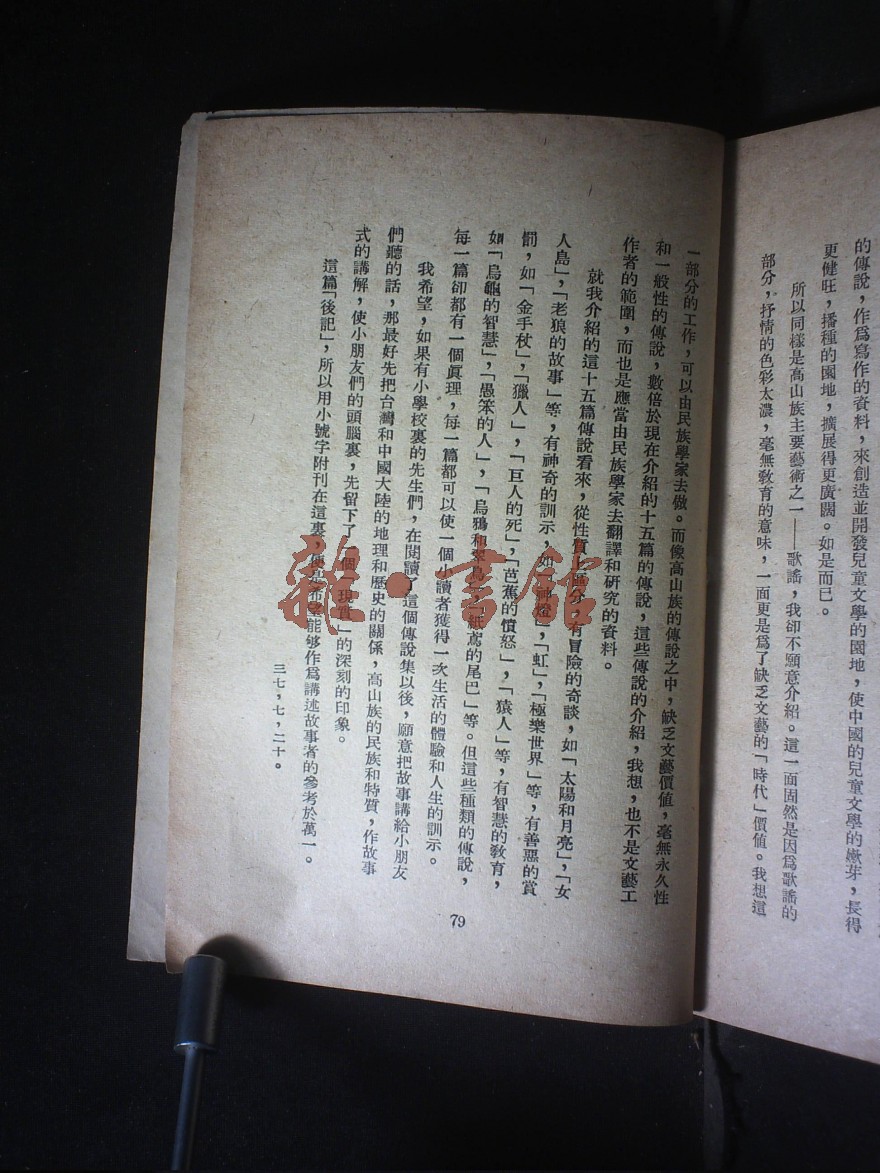 的傳說，作爲寫作的資料，來創造並開發兒童文學的園地，使中國的兒童文學的嫩芽，長得
更健旺，播種的園地，擴展得更廣闊。如是而已。
所以同樣是高山族主要藝術之一——歌謠，我卻不願意介紹。這一面固然是因爲歌謠的
部分，抒情的色彩太濃，毫無敎育的意味，一面更是爲了缺乏文藝的「時代」價值。我想這
一部分的工作，可以由民族學家去做。而像高山族的傳說之中，缺乏文藝價値，毫無永久性
和一般性的傳說，數倍於現在介紹的十五篇的傳說，這些傳說的介紹，我想，也不是文藝工
作者的範圍，而也是應當由民族學家去翻譯和研究的資料。
就我介紹的這十五篇傳說看來，從性質上區分，有冒險的奇談，如「太陽和月亮」，「女
人島」，「老狼的故事」等，有神奇的訓示，如「神燈」，「虹」，「極樂世界」等，有善惡的賞
罰，如「金手杖」，「獵人」，「巨人的死」，「芭蕉的憤怒」，「猿人」等，有智慧的敎育，
如「烏龜的智慧」，「愚笨的人」，「烏鴉和翠鳥」，「紙鳶的尾巴」等。但這些種類的傳說，
每一篇卻都有一個眞理，每一篇都可以使一個小讀者獲得一次生活的體驗和人生的訓示。
我希望，如果有小學校裏的先生們，在閱讀了這個傳說集以後，願意把故事講給小朋友
們聽的話，那最好先把台灣和中國大陸的地理和歷史的關係，高山族的民族和特質，作故事
式的講解，使小朋友們的頭腦裏，先留下了一個「現實」的深刻的印象。
這篇「後記」，所以用小號字附刊在這裏，便是希望能够作爲講述故事者的參考於萬一。
三七，七，二十。
79
雜·書館